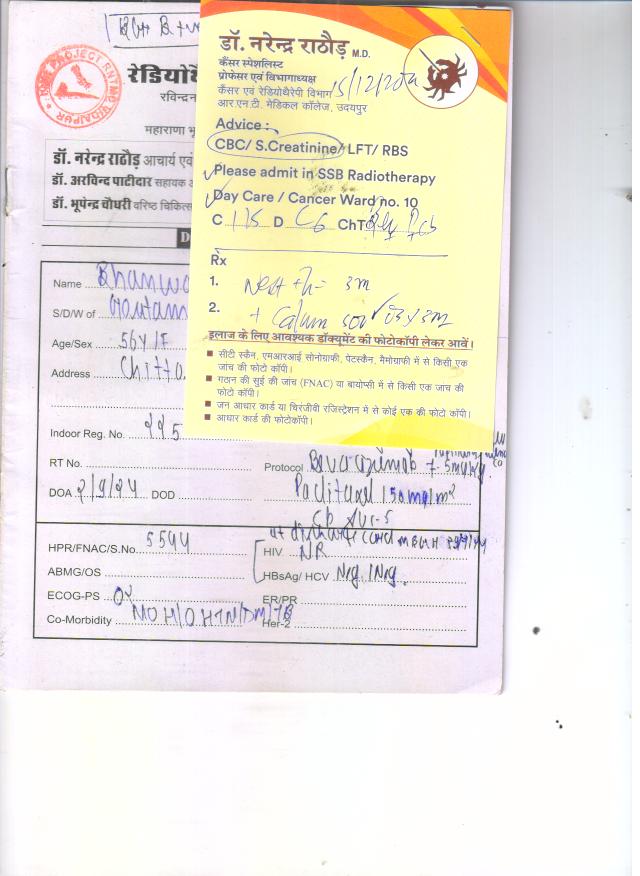 डॉ. नरेन्द्र राठौड़ M.D.
कैंसर स्पेशलिस्ट
प्रोफेसर एवं विभागाध्यक्ष
कैंसर एवं रेडियोथैरेपी विभाग 15/12/2024
आर.एन.टी. मेडिकल कॉलेज, उदयपुर
Advice :
CBC/ S.Creatinine/ LFT/ RBS
Please admit in SSB Radiotherapy
Day Care / Cancer Ward no. 10
C D C6 ChT
Rx
1. 3m
2. +
इलाज के लिए आवश्यक डॉक्यूमेंट की फोटोकॉपी लेकर आवें।
सीटी स्कैन, एमआरआई सोनोग्राफी, पेटस्कैन, मैमोग्राफी में से किसी एक
जांच की फोटो कॉपी।
गठान की सुई की जांच (FNAC) या बायोप्सी में से किसी एक जांच की
फोटो कॉपी।
जन आधार कार्ड या चिरंजीवी रजिस्ट्रेशन में से कोई एक की फोटो कॉपी।
आधार कार्ड की फोटोकॉपी।
PROJECT RNTMC UDAIPUR
रेडियोथै
रविन्द्रन
महाराणा भू
डॉ. नरेन्द्र राठौड़ आचार्य एवं
डॉ. अरविन्द पाटीदार सहायक
डॉ. भूपेन्द्र चौधरी वरिष्ठ चिकित्स
D
Name Bhanwa
S/D/W of Goutam
Age/Sex 56y/F
Address Chitto
Indoor Reg. No. 225
RT No.
Protocol 7.5mg/kg
DOA 2/9/24 DOD
Paclitaxel 150mg/m²
AUC-5
at discharge card
HPR/FNAC/S.No. 5544
HIV NR
ABMG/OS
HBsAg/ HCV Neg./Neg.
ECOG-PS 02
ER/PR
Co-Morbidity NO H/O HTN/DM/TB
Her-2